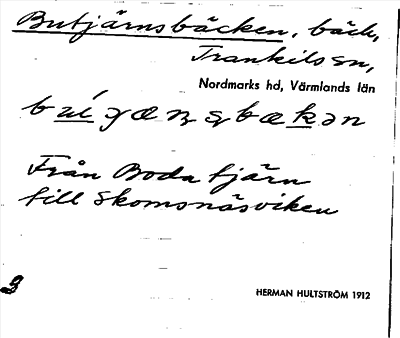 Butjärnsbäcken, bäck,
Trankils sn,
Nordmarks hd, Värmlands län
Från Boda tjärn
till Skomsnäsviken
HERMAN HULTSTRÖM 1912